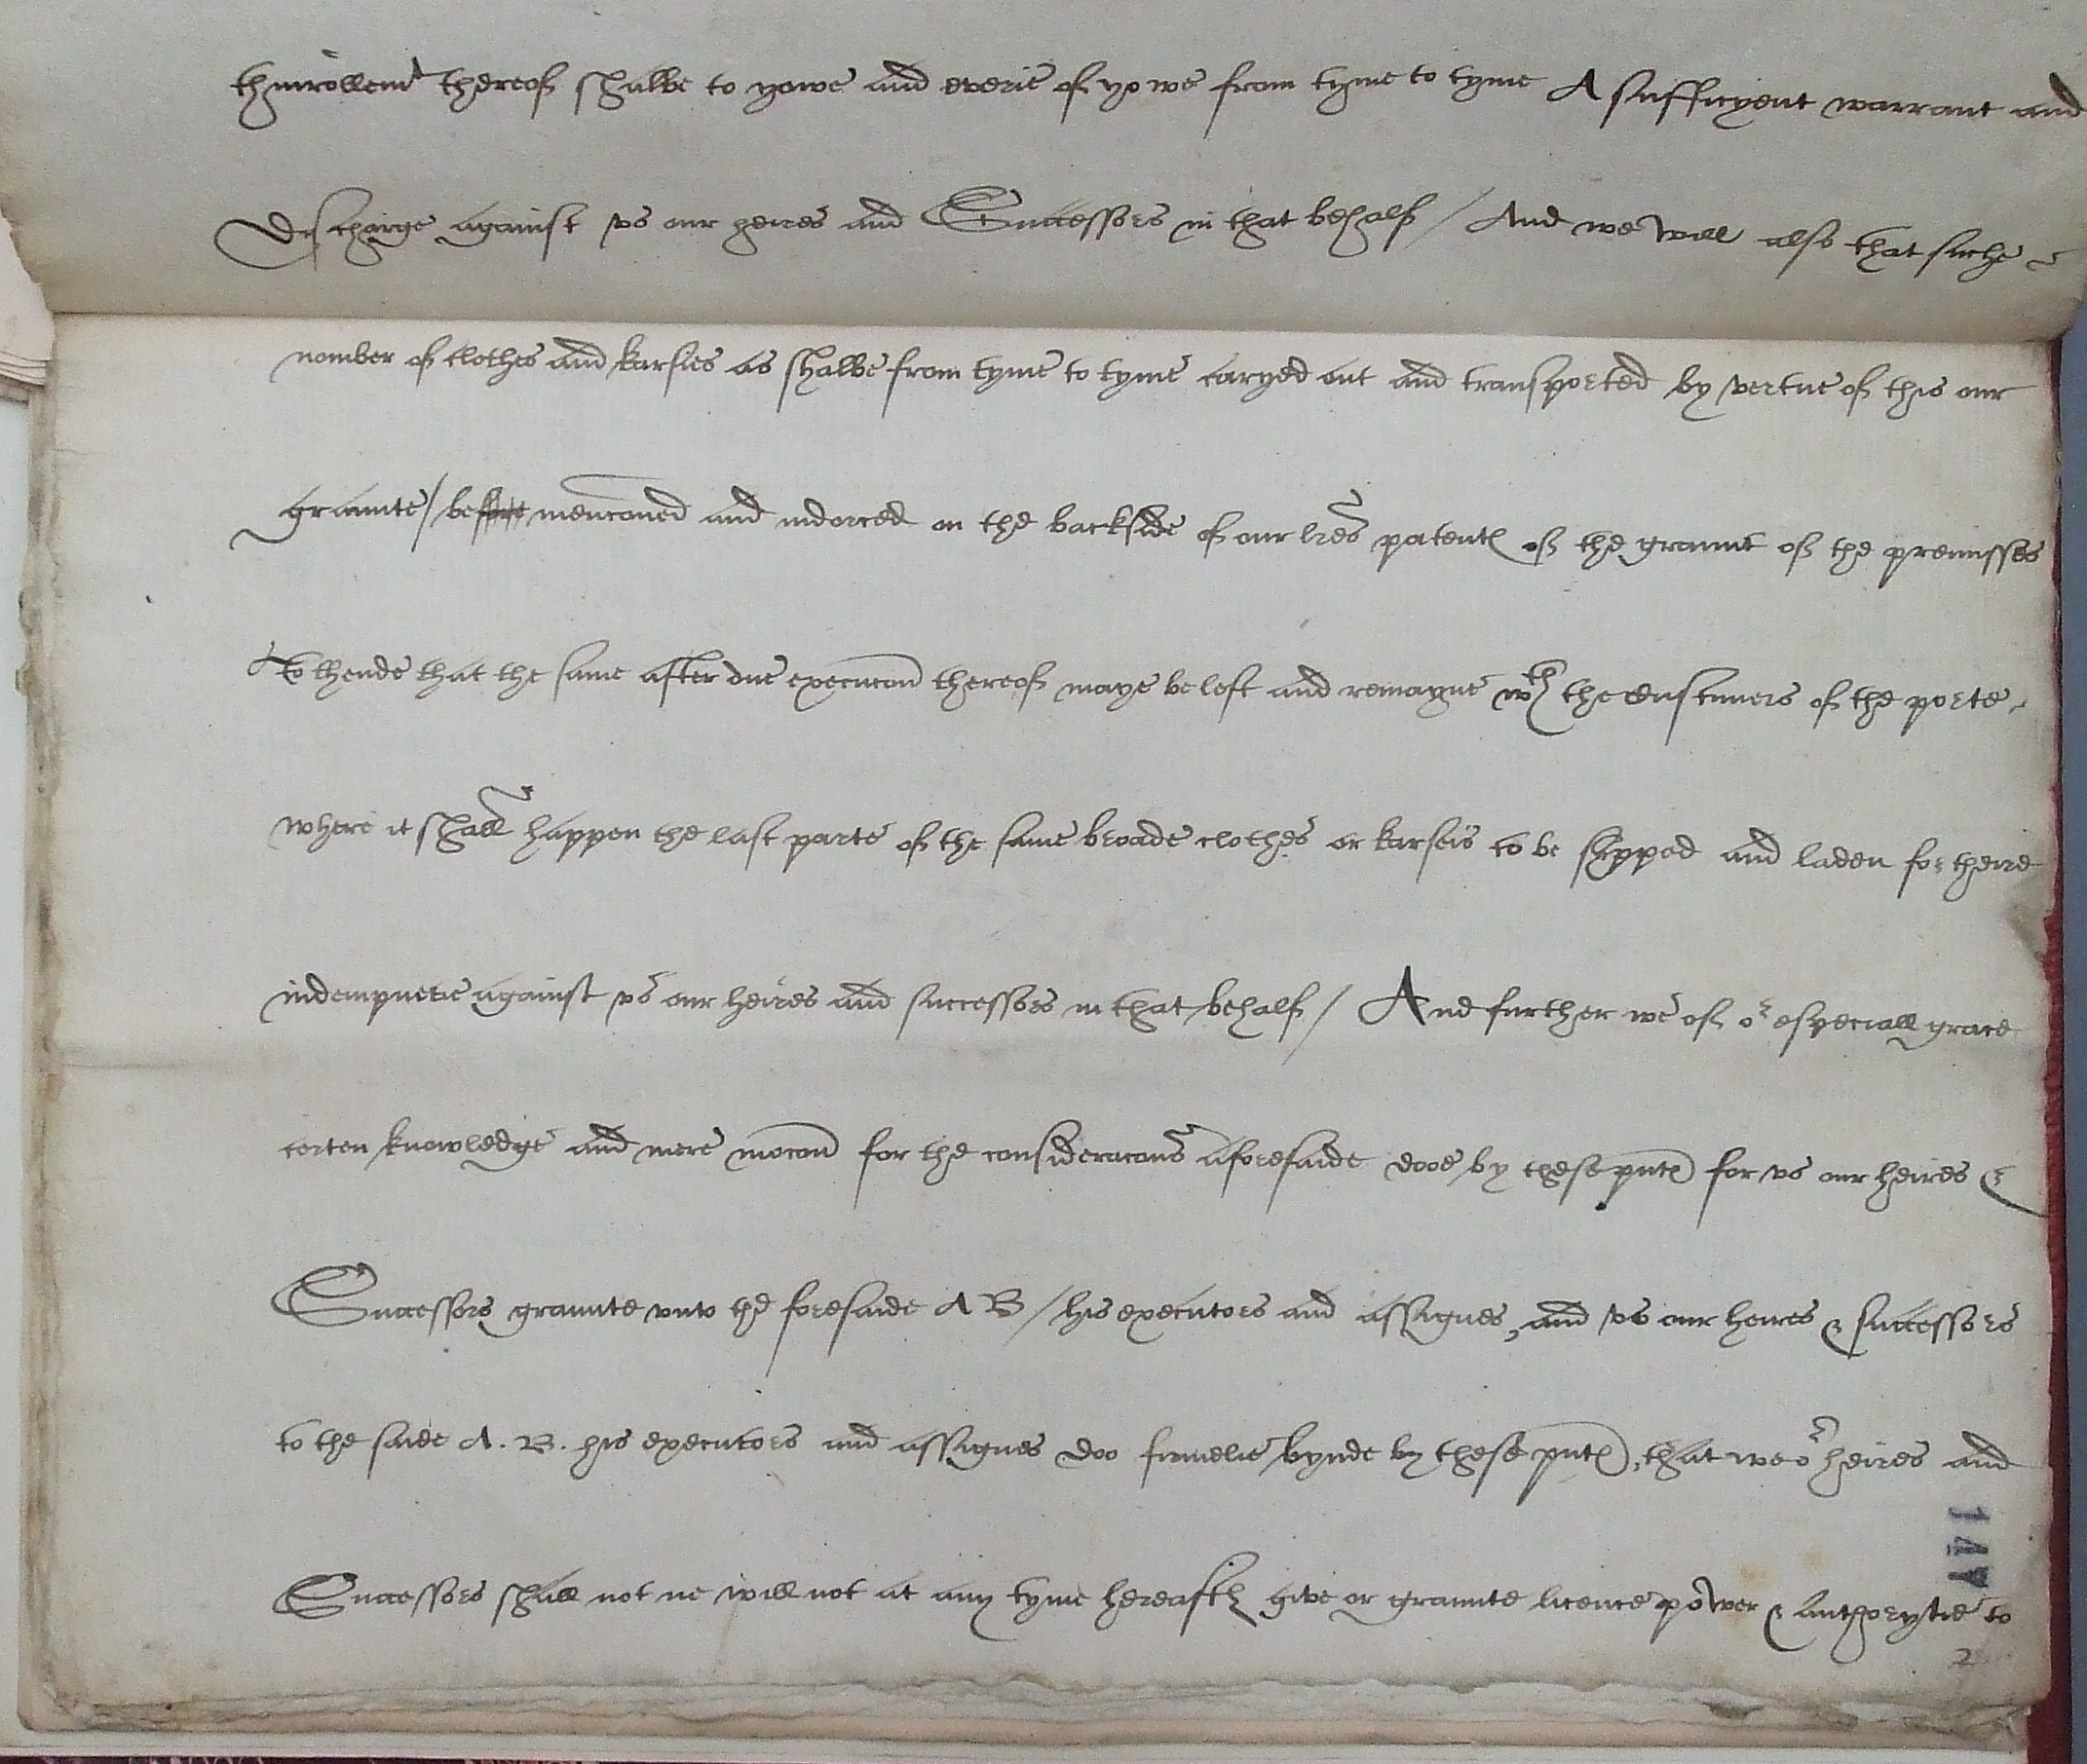 thinrollemt thereof shalbe to yowe and everie of yowe from tyme to tyme A sufficyent warrant and
Discharge against vs our heires and Successors in that behalf / And we will also that suche
nomber of clothes and karsies as shalbe from tyme to tyme caryed out and transported by vertue of this our
graunte / be mencōned and indorced on the backside of our lres patents of the graunt of the premisses
To thende that the same after due execucōn thereof maye be left and remayne wth the Customers of the porte
where it shall happen the last parte of the same broade clothes or karseis to be shipped and laden for theire
indempnetie against vs our heires and successors in that behalf / And further we of or especiall grace
certen knowledge and mere mocōn for the consideracōns aforesaide dooe by these pnts for vs our heires &
Successors graunte vnto the foresaide A B / his executors and assignes, and vs our heires & successors
to the saide A. B. his executors and assignes doo firmelie bynde by these pnts, that we or heires and
Successors shall not ne will not at any tyme hereafter give or graunte licence power & Authorytie to
2